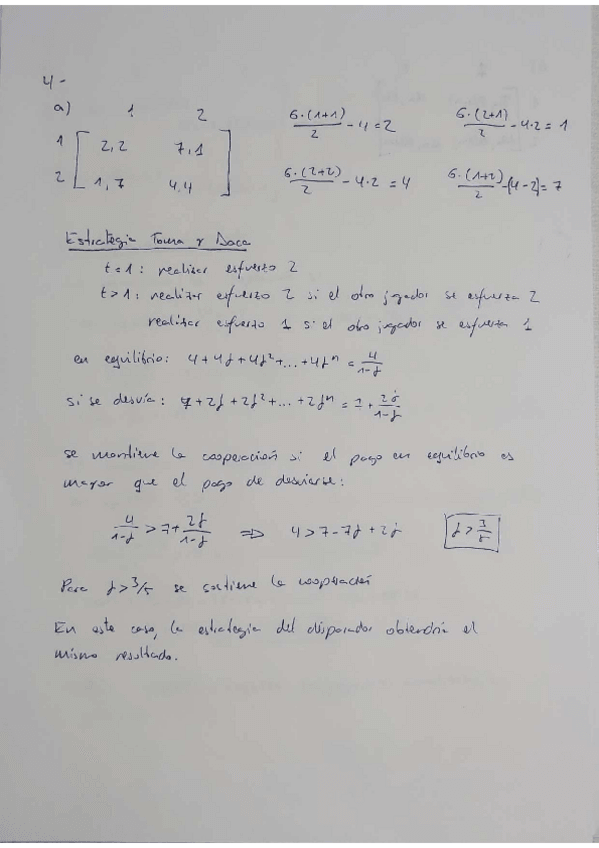 4-
a) 1 2
1 [ 2,2 7,1 ]
2 [ 1,7 4,4 ]
6·(1+1)/2 - 4 = 2 6·(2+1)/2 - 4·2 = 1
6·(2+2)/2 - 4·2 = 4 6·(1+2)/2 - (4-2) = 7
Estrategia Toma y Daca
t=1: realizar esfuerzo 2
t>1: realizar esfuerzo 2 si el otro jugador se esfuerza 2
realizar esfuerzo 1 si el otro jugador se esfuerza 1
en equilibrio: 4+4δ+4δ²+...+4δⁿ = 4/(1-δ)
si se desvía: 7+2δ+2δ²+...+2δⁿ = 7 + 2δ/(1-δ)
se mantiene la cooperación si el pago en equilibrio es
mayor que el pago de desviarse:
4/(1-δ) > 7 + 2δ/(1-δ) ⇒ 4 > 7-7δ+2δ δ > 3/5
Para δ > 3/5 se sostiene la cooperación
En este caso, la estrategia del disparador obtendría el
mismo resultado.